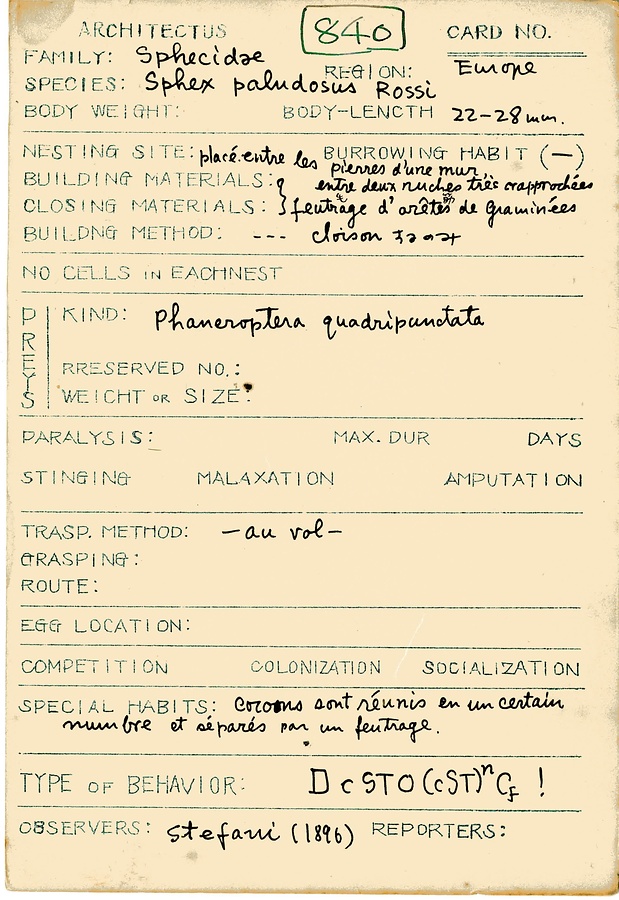 ARCHITECTUS 840 CARD NO.
FAMILY: Sphecidae
REGION: Europe
SPECIES: Sphex paludosus Rossi
BODY WEIGHT: BODY-LENGTH 22-28mm.
NESTING SITE: placé entre les pierres d'une mur, BURROWING HABIT (—)
entre deux ruches très rapprochées
BUILDING MATERIALS:
CLOSING MATERIALS: } feutrage d'arêtes de Graminées
BUILDNG METHOD: --- cloison
NO CELLS IN EACHNEST
PREYS
KIND: Phaneroptera quadripunctata
RRESERVED NO.:
WEICHT OR SIZE:
PARALYSIS: MAX. DUR DAYS
STINGING MALAXATION AMPUTATION
TRASP. METHOD: —au vol—
GRASPING:
ROUTE:
EGG LOCATION:
COMPETITION COLONIZATION SOCIALIZATION
SPECIAL HABITS: Cocons sont réunis en un certain
numbre et séparés par un feutrage.
TYPE OF BEHAVIOR: D c STO (cST)ⁿ C_f !
OBSERVERS: Stefani (1896) REPORTERS: